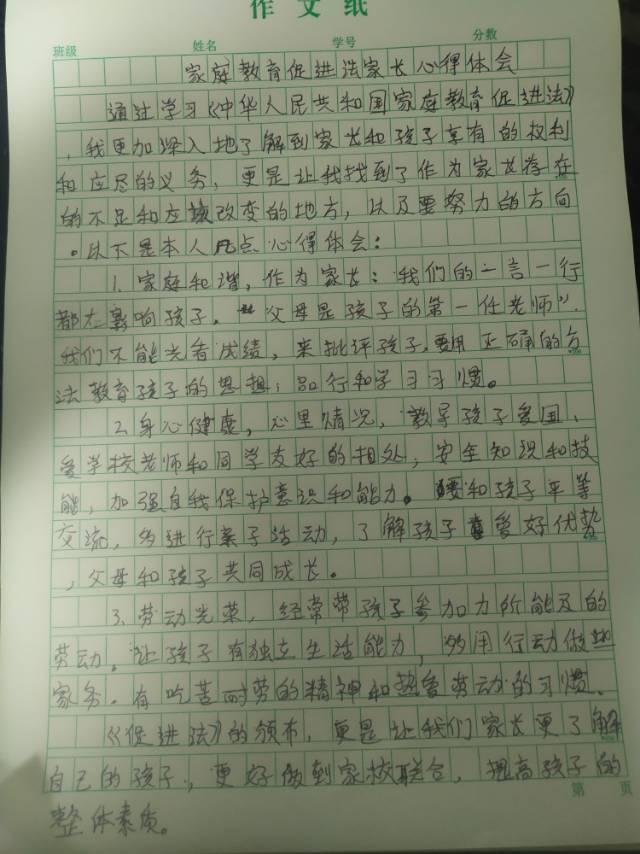 作文纸
班级 姓名 学号 分数
家庭教育促进法家长心得体会
通过学习《中华人民共和国家庭教育促进法》
，我更加深入地了解到家长和孩子享有的权利
和应尽的义务，更是让我找到了作为家长存在
的不足和应该改变的地方，以及要努力的方向
。以下是本人几点心得体会：
1.家庭和谐，作为家长：我们的一言一行
都大影响孩子，“父母是孩子的第一任老师”.
我们不能光看成绩，来批评孩子.要用正确的方
法教育孩子的思想；品行和学习习惯。
2.身心健康，心里情况，教导孩子爱国、
爱学校老师和同学友好的相处，安全知识和技
能，加强自我保护意识和能力。要和孩子平等
交流，多进行亲子活动，了解孩子爱好优势
，父母和孩子共同成长。
3.劳动光荣，经常带孩子参加力所能及的
劳动。让孩子有独立生活能力，多用行动做些
家务.有吃苦耐劳的精神和热爱劳动的习惯.
《促进法》的颁布，更是让我们家长更了解
自己的孩子，更好做到家校联合，提高孩子的
第 页
整体素质。